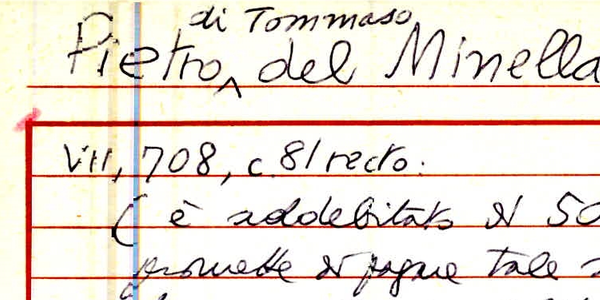 di Tommaso
Pietro ^ del Minella
VII, 708, c. 81 recto:
( è addebitato di 50
promette di pagare tale